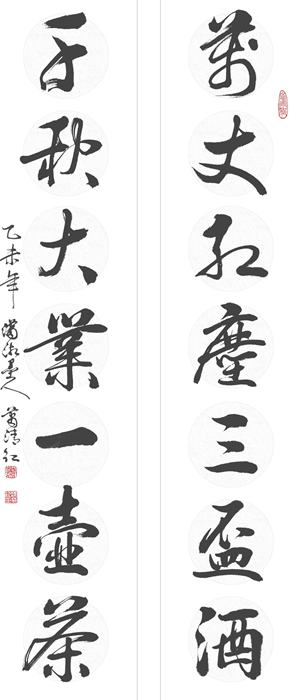 萬丈红塵三盃酒
千秋大業一壺茶
乙未年